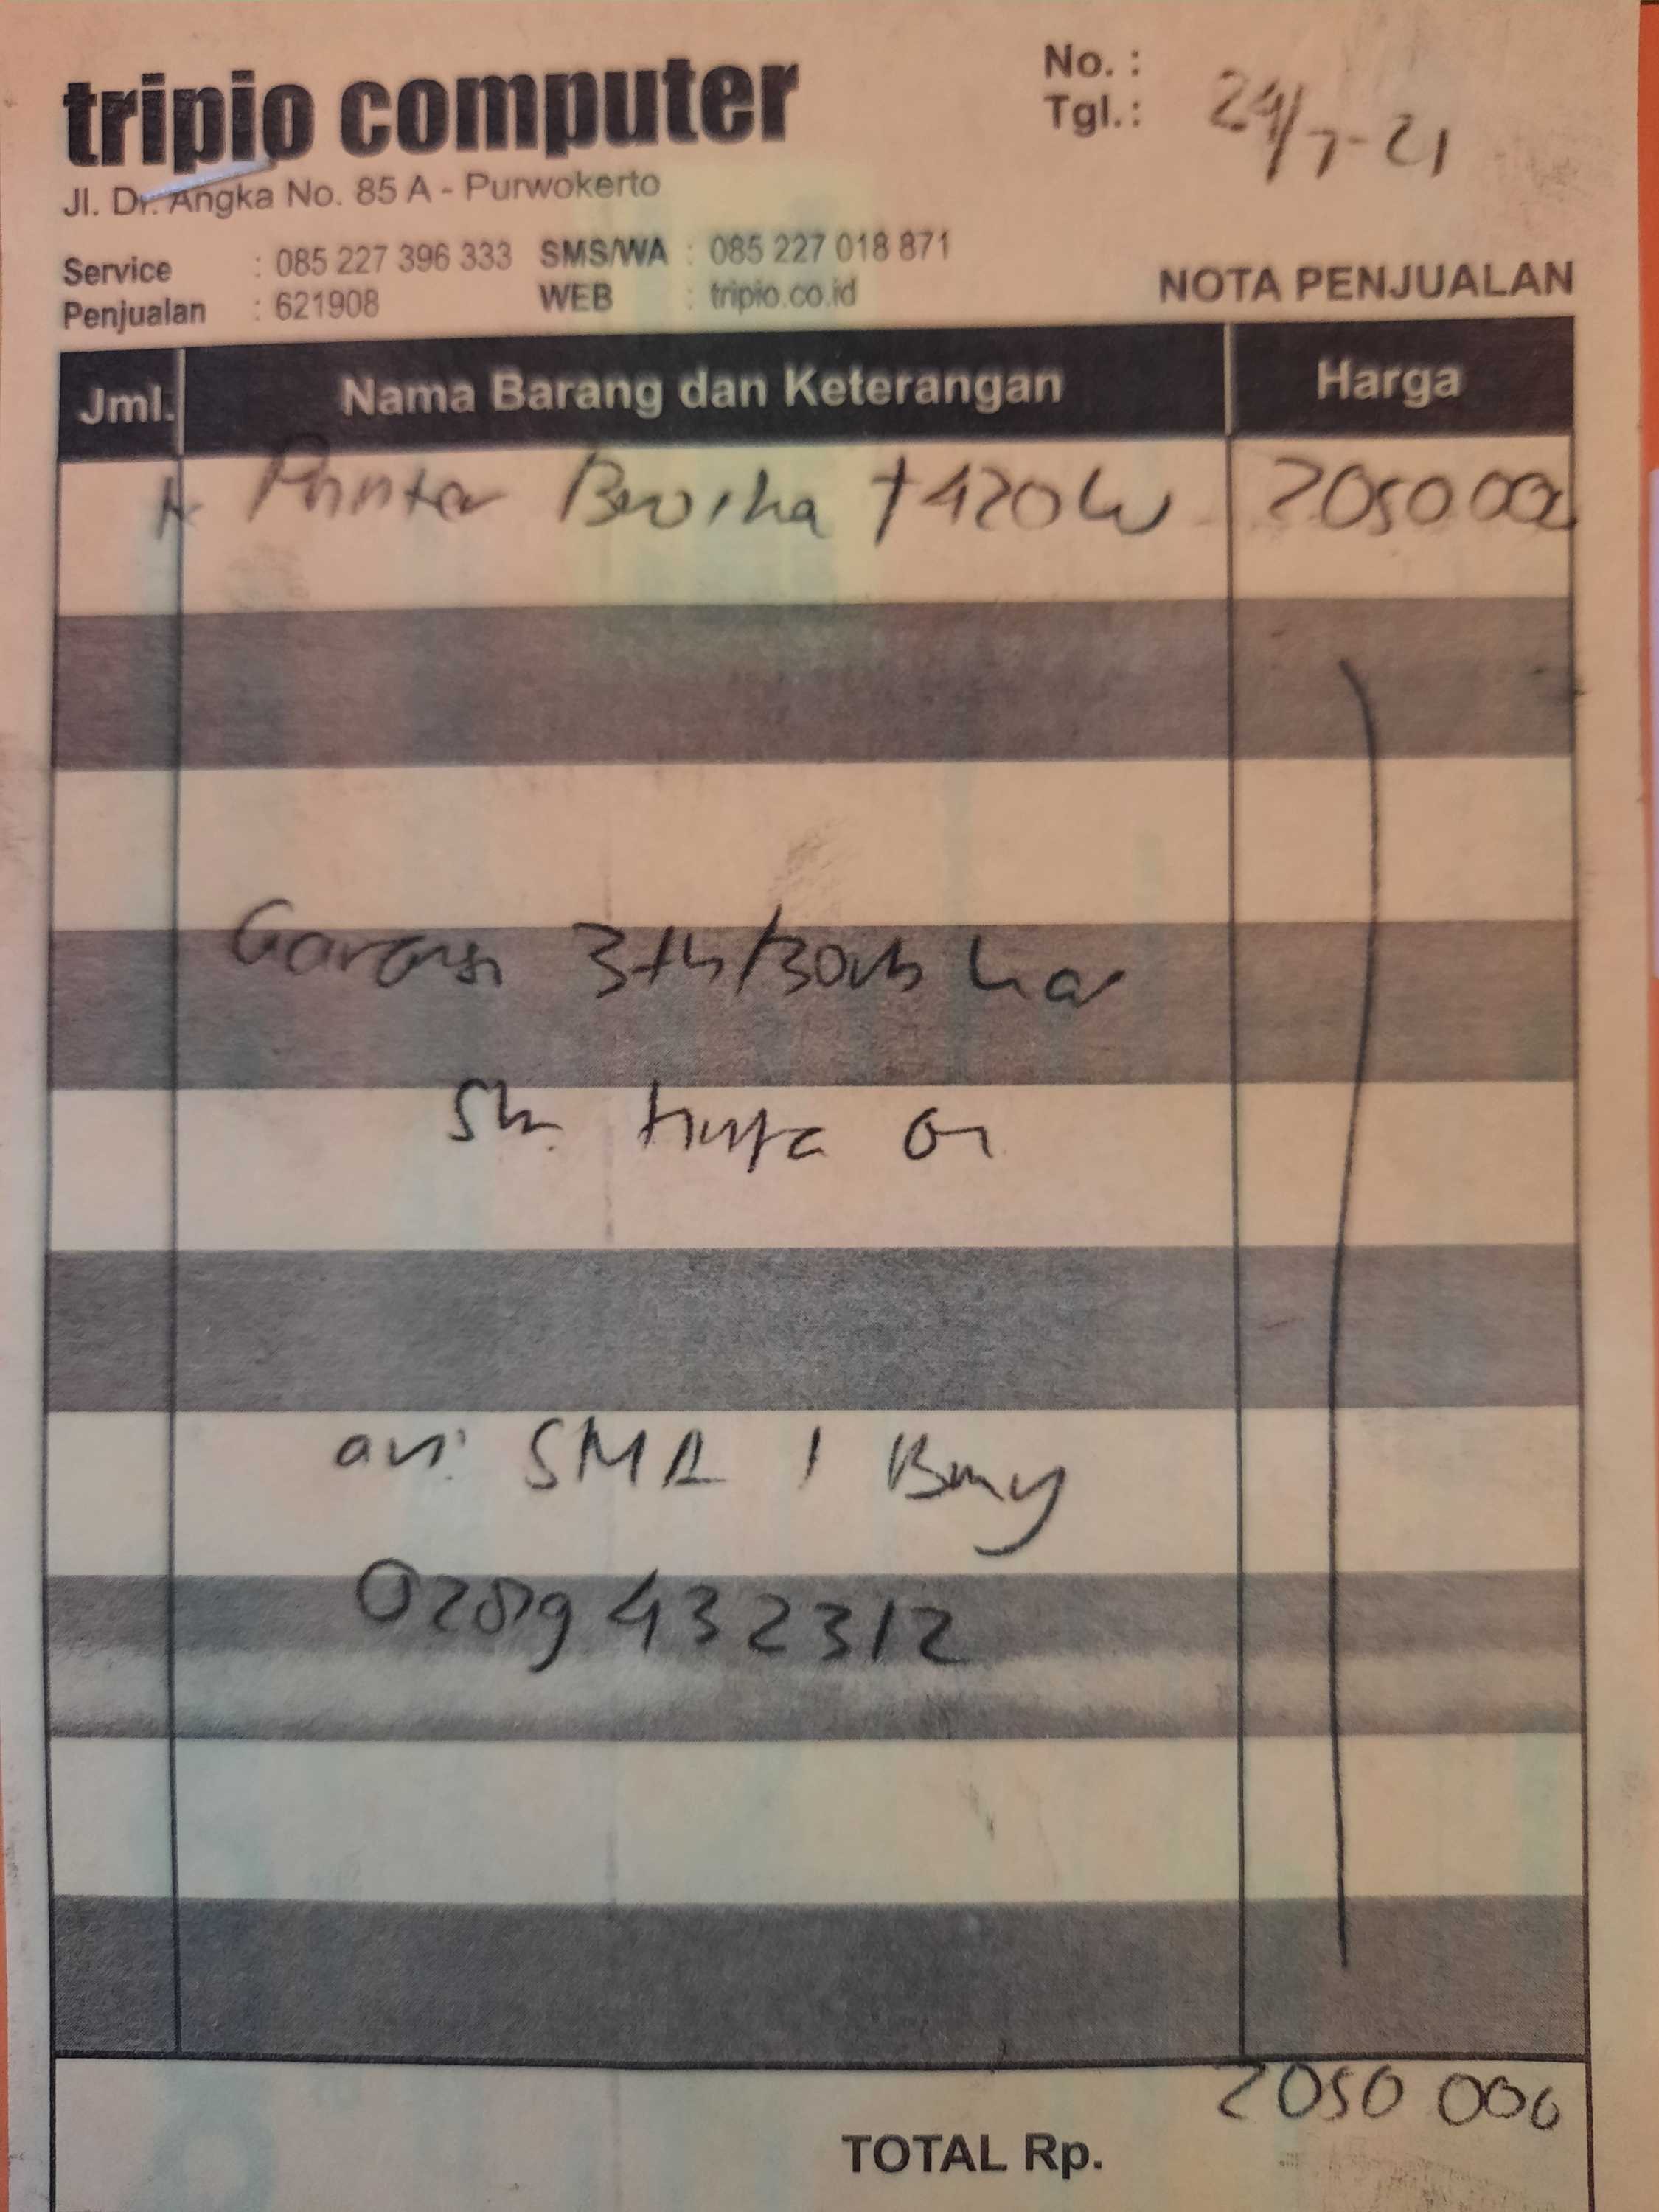 tripio computer
No. :
Tgl. : 24/7-21
Jl. Dr. Angka No. 85 A - Purwokerto
Service : 085 227 396 333 SMS/WA : 085 227 018 871
Penjualan : 621908 WEB : tripio.co.id
NOTA PENJUALAN
Jml. Nama Barang dan Keterangan Harga
Printer Brother T420W 2050000
Garansi 3th/30rb
an: SMA 1 Bmy
0289 432312
2050 000
TOTAL Rp.